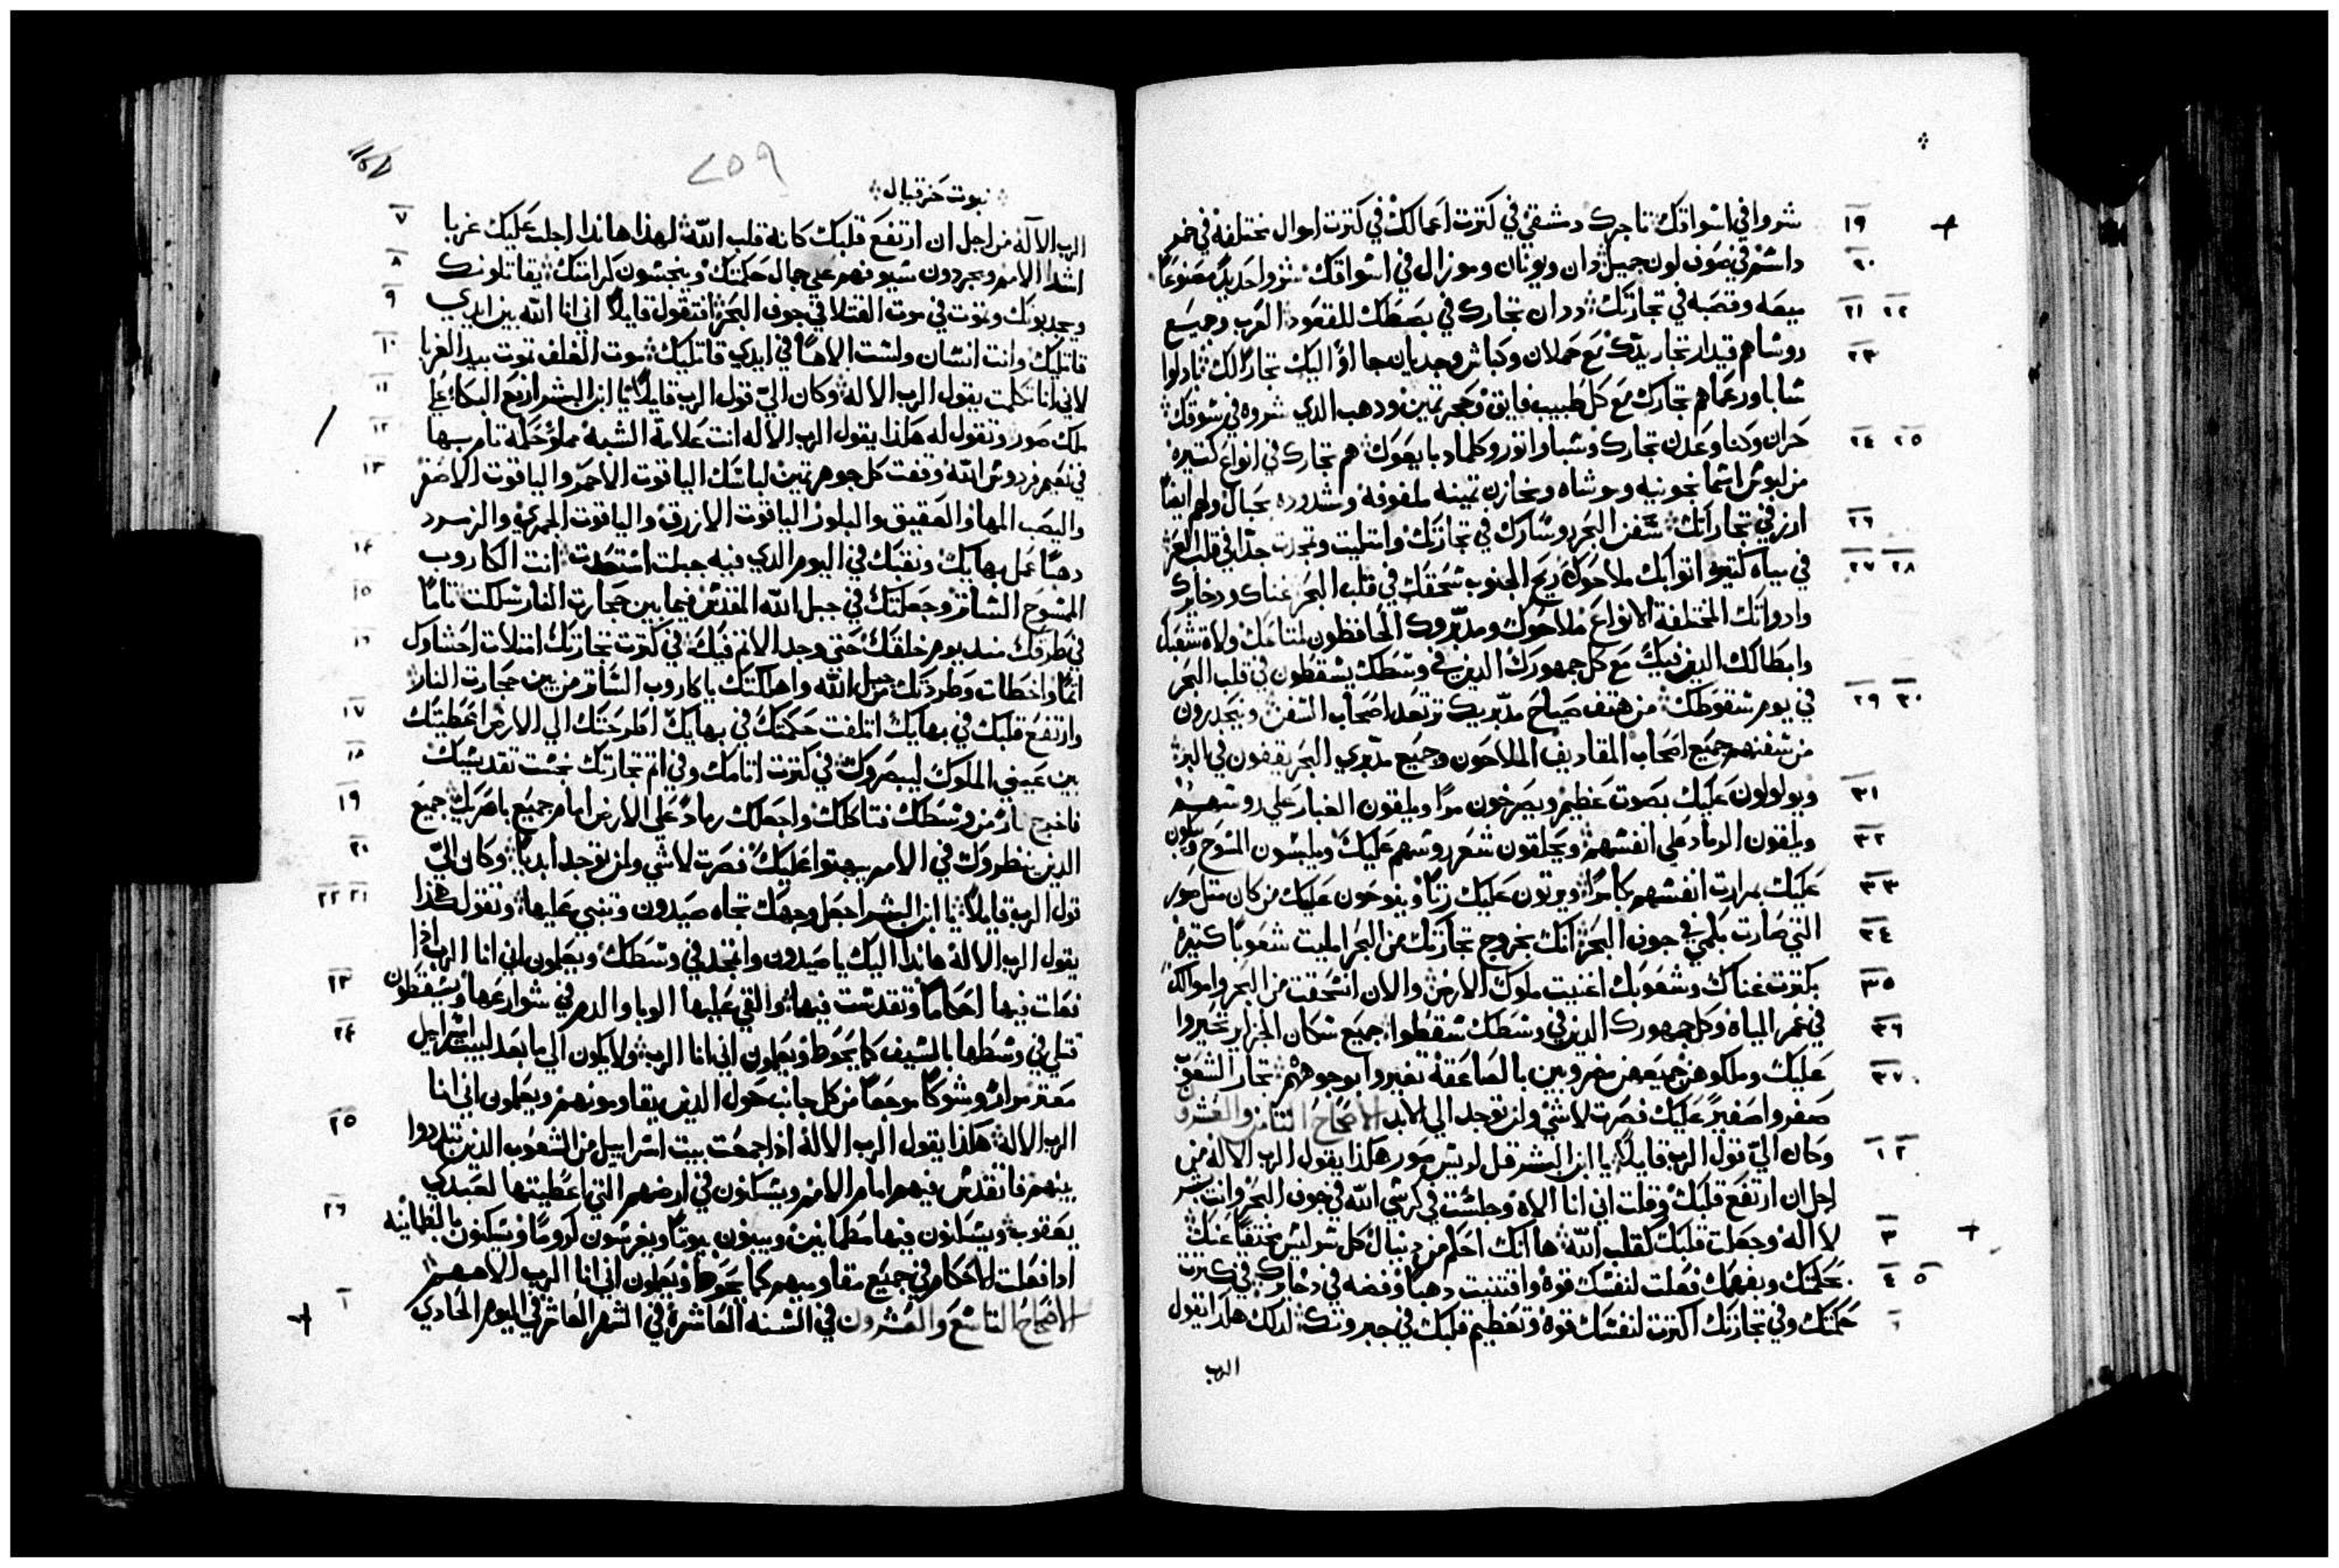 شروا في اسواقك تاجرك دمشقي في كترت اعمالك في كترت اموال مختلفه في خمر
داسم في صوف لون جميل دان ويونان وموزال في اسواقك شروا حديدًا مصنوعًا
ميعه وقصبه في تجارتك ددان تجارك في بصطك للقعود العرب وجميع
روساهم قيدار تجار يدك مع حملان وكباش وجديان جاؤا اليك تجارًا لك تبادلوا
شابا ورعماهم تجارك مع كل طبيب فايق وحجر تمين ودهب الدي شروه في سوقك
حران وكنا وعدن تجارك وشبا واتور وكلماد بايعوك هم تجارك في انواع كتيره
من لبوس اسمانجونيه وحوشاه ومخازن تمينه ملفوفه ومشدوده بحبال ولهم ايضًا
ارز في تجاراتك سفن البحر روساك في تجارتك وامتليت وتمجدت جدًا في قلب البحر
في مياه كتيره اتوا بك ملاحوك ريح الجنوب سحقك في قلب البحر غناك ودخايرك
وادواتك المختلفة الانواع ملاحوك ومدبروك الحافظون لمتاعك ولاة شعبك
وابطالك الدين فيك مع كل جمهورك الدين في وسطك يسقطون في قلب البحر
في يوم سقوطك من هتف صياح مدبريك ترتعد اصحاب السفن وينحدرون
من سفنهم جميع اصحاب المقاديف الملاحون وجميع مدبري البحر يقفون في البر
ويولولون عليك بصوت عظيم ويصرخون مرًا ويلقون الغبار علي روسهم
ويلقون الرماد علي انفسهم ويحلقون شعر روسهم عليك ويلبسون المسوح ويبكون
عليك بمرارت انفسهم بكا مرًا ويرتون عليك رتًا وينوحون عليك من كان متل صور
التي صارت بكمي في جوف البحر انك بخروج تجارتك من البحر امليت شعوبًا كتيره
بكترت غناك وشعوبك اغنيت ملوك الارض والان انسحقت من البحر واموالك
في غمر المياه وكل جمهورك الدين في وسطك سقطوا جميع سكان الجزاير تحيروا
عليك وملكوهن جميعهن مضروبين بالصاعقة تغيروا بوجوههم تجار الشعوب
صفروا صفيرًا عليك فصرت لاشي ولن توجد الي الابد الاصحاح التامن والعشرون
وكان اليّ قول الرب قايلًا يا ابن البشر قل لريس صور هكذا يقول الرب الاله من
اجل ان ارتفع قلبك وقلت اني انا الاه وجلست في كرسي الله في جوف البحر وانت بشر
لا اله وجعلت قلبك كقلب الله ها انك احكم من دينال كل سر ليس مختفيًا عنك
بحكمتك وبفهمك فعلت لنفسك قوة واقتنيت دهبًا وفضه في دخايرك في كترت
حكمتك وفي تجارتك اكترت لنفسك قوة وتعظيم قلبك في جبروتك لدلك هكذا يقول
الرب
١٩
٢٠
٢١ ٢٢
٢٣
٢٤ ٢٥
٢٦
٢٧ ٢٨
٢٩ ٣٠
٣١
٣٢
٣٣
٣٤
٣٥
٣٦
٣٧
١ ٢
٣
٤ ٥
٦
٢٥٩
نبوت حزقيال
الرب الاله من اجل ان ارتفع قلبك كانه قلب الله لهذا هاندا اجلب عليك غربا
اشدا الامم ويجردون سيوفهم علي جمال حكمتك وينجسون كرامتك يقاتلونك
ويجدبونك وتموت في موت القتلا في جوف البحر افتقول قايلًا اني انا الله بين ايدي
قاتليك وانت انسان ولست الاهًا في ايدي قاتليك موت الغلف تموت بيد الغربا
لاني انا تكلمت يقول الرب الاله وكان اليّ قول الرب قايلًا يا ابن البشر ارفع البكا علي
ملك صور وتقول له هكذا يقول الرب الاله انت علامة الشبه مملو حكمه تام ببها
في نعيم فردوس الله وقفت كل جوهر تمين لباسك الياقوت الاحمر والياقوت الاصفر
واليصب المها والعقيق والبلور الياقوت الازرق والياقوت الجمري والزمرد
دهبًا عمل بهايك ونقبك في اليوم الدي فيه جبلت استعدت انت الكاروب
المسوح الساتر وجعلتك في جبل الله المقدس فيما بين حجارت النار سلكت تامًا
في طرقك مند يوم خلقك حتي وجد الاتم فيك في كترت تجارتك امتلات احشاوك
اتمًا واخطات وطردتك من جبل الله واهلكتك يا كاروب الساتر من بين حجارت النار
وارتفع قلبك في بهايك اتلفت حكمتك في بهايك اطرحتك الي الارض اعطيتك
بين عيني الملوك ليبصروك في كترت اتامك وفي اتم تجارتك نجست تقديسك
فاخرج نار من وسطك فتاكلك واجعلك رمادً علي الارض امام جميع باصريك جميع
الدين ينظروك في الامم يبهتوا عليك فصرت لاشي ولن توجد أبدًا وكان اليّ
قول الرب قايلًا يا ابن البشر اجعل وجهك تجاه صيدون وتنبي عليها وتقول هكذا
يقول الرب الاله هاندا اليك يا صيدون واتمجد في وسطك ويعلمون اني انا الرب ادا
فعلت فيها احكامًا وتقدست فيها والقي عليها الوبا والدم في شوارعها ويسقطون
قتلي في وسطها بالسيف كما يحوط ويعلمون اني انا الرب ولا يكون الي ما بعد لبيت اسراييل
معتر مرارً وشوكًا موجعًا من كل جانب حول الدين يقاومونهم ويعلمون اني انا
الرب الاله هكذا يقول الرب الاله ادا جمعت بيت اسراييل من الشعوب الدين تبددوا
بينهم فاتقدس فيهم امام الامم ويسكنون في ارضهم التي اعطيتها لعبدي
يعقوب ويسكنون فيها مطمانين ويبنون بيوتًا ويغرسون كرومًا ويسكنون بالطمانينه
ادا فعلت الاحكام في جميع مقاوميهم كما يحوط ويعلمون اني انا الرب الاههم
الاصحاح التاسع والعشرون في السنه العاشرة في الشهر العاشر في اليوم الحادي
٧
٨
٩
١٠
١١
١٢
١٣
١٤
١٥
١٦
١٧
١٨
١٩
٢٠
٢١ ٢٢
٢٣
٢٤
٢٥
٢٦
١